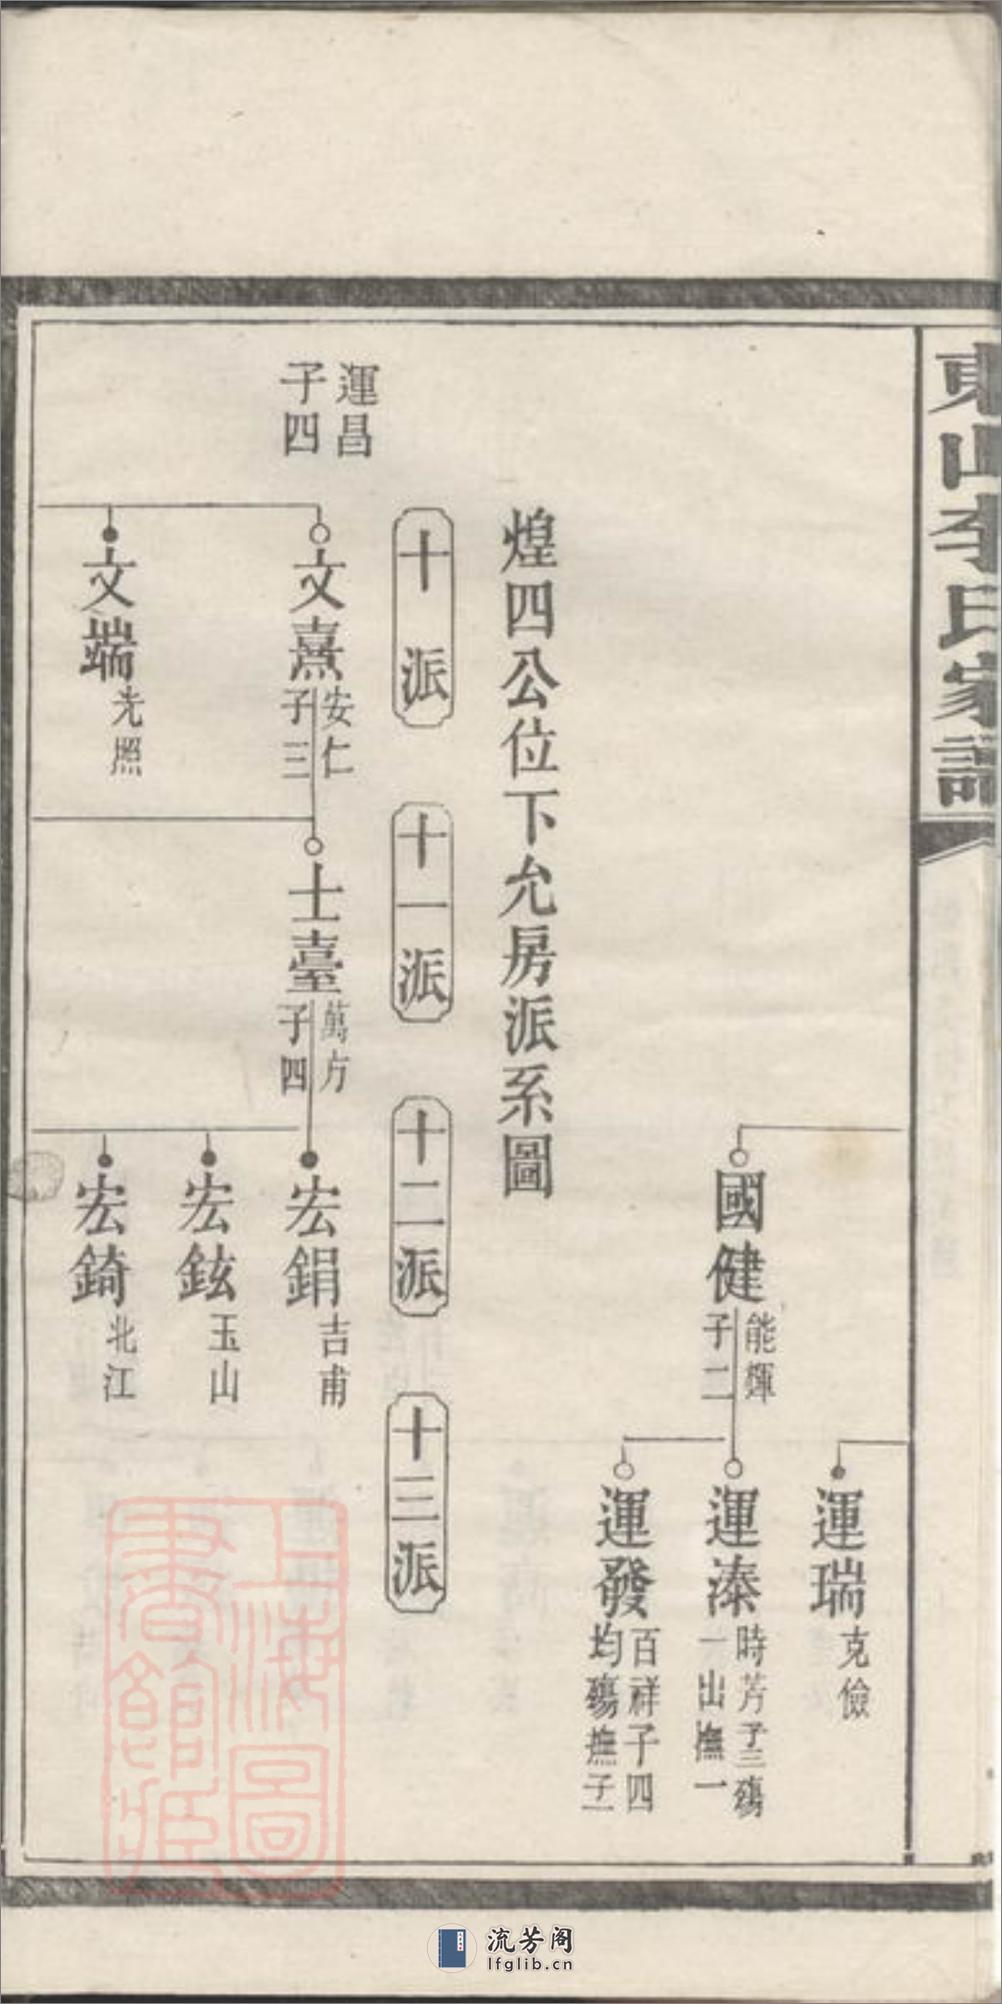 東山李氏家譜
運瑞
克儉
國健
能輝
子二
運溱
時芳子三殤
一出撫一
運發
百祥子四
均殤撫子一
煌四公位下允房派系圖
十派
十一派
十二派
十三派
運昌
子四
文熹
安仁
子三
士臺
萬方
子四
宏鋗
吉甫
宏鉉
玉山
文端
光照
宏錡
北江
上海圖書館藏
流芳阁
lfglib.cn